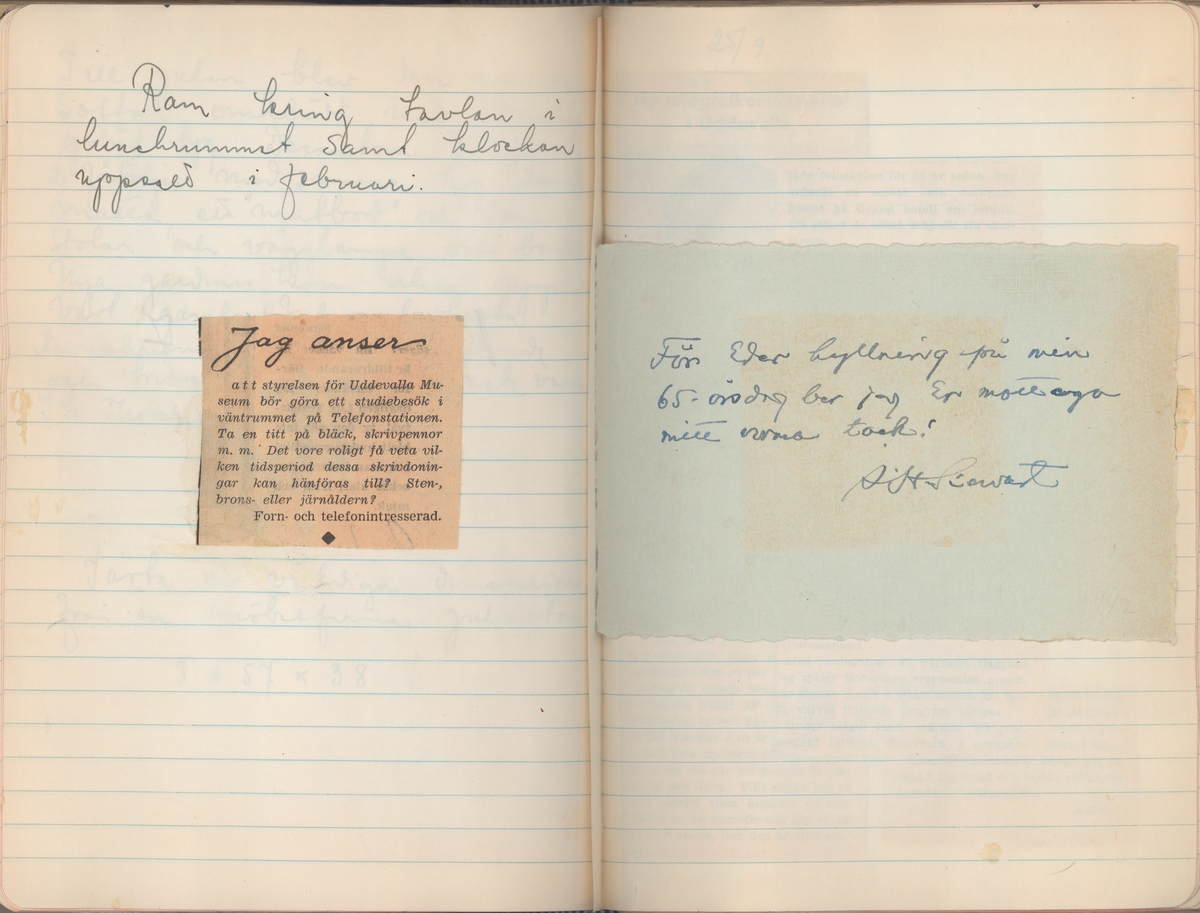 Ram kring tavlan i
lunchrummet samt klockan
uppsatt i februari.
Jag anser
att styrelsen för Uddevalla Mu-
seum bör göra ett studiebesök i
väntrummet på Telefonstationen.
Ta en titt på bläck, skrivpennor
m. m. Det vore roligt få veta vil-
ken tidsperiod dessa skrivdonin-
gar kan hänföras till? Sten-,
brons- eller järnåldern?
Forn- och telefonintresserad.
25/9
För Eder hyllning på min
65-årsdag ber jag Er mottaga
mitt varma tack!